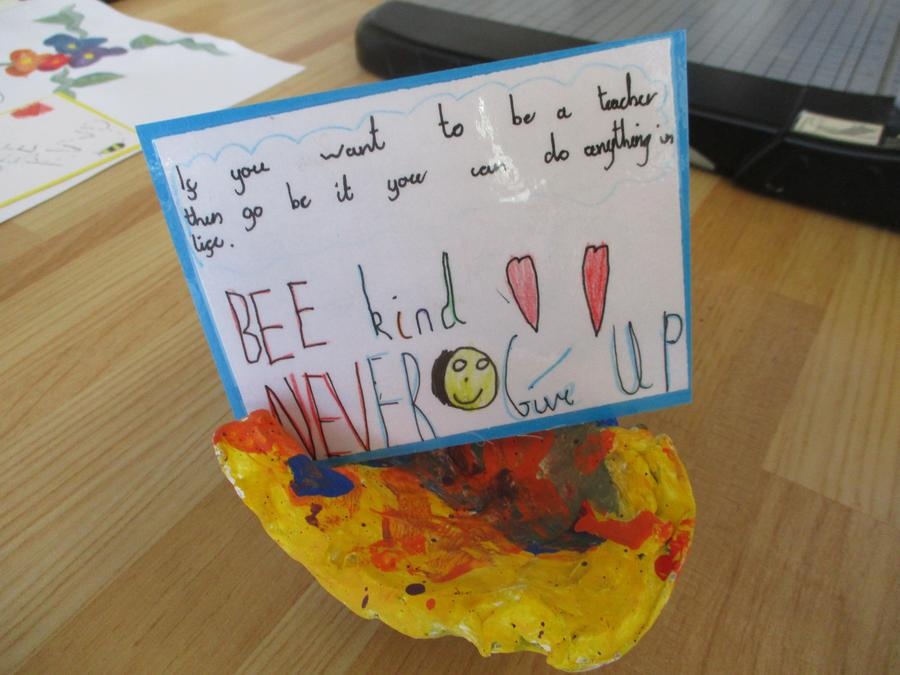 If you want to be a teacher
then go be it you can do anything in
life.
BEE kind
NEVER Give UP